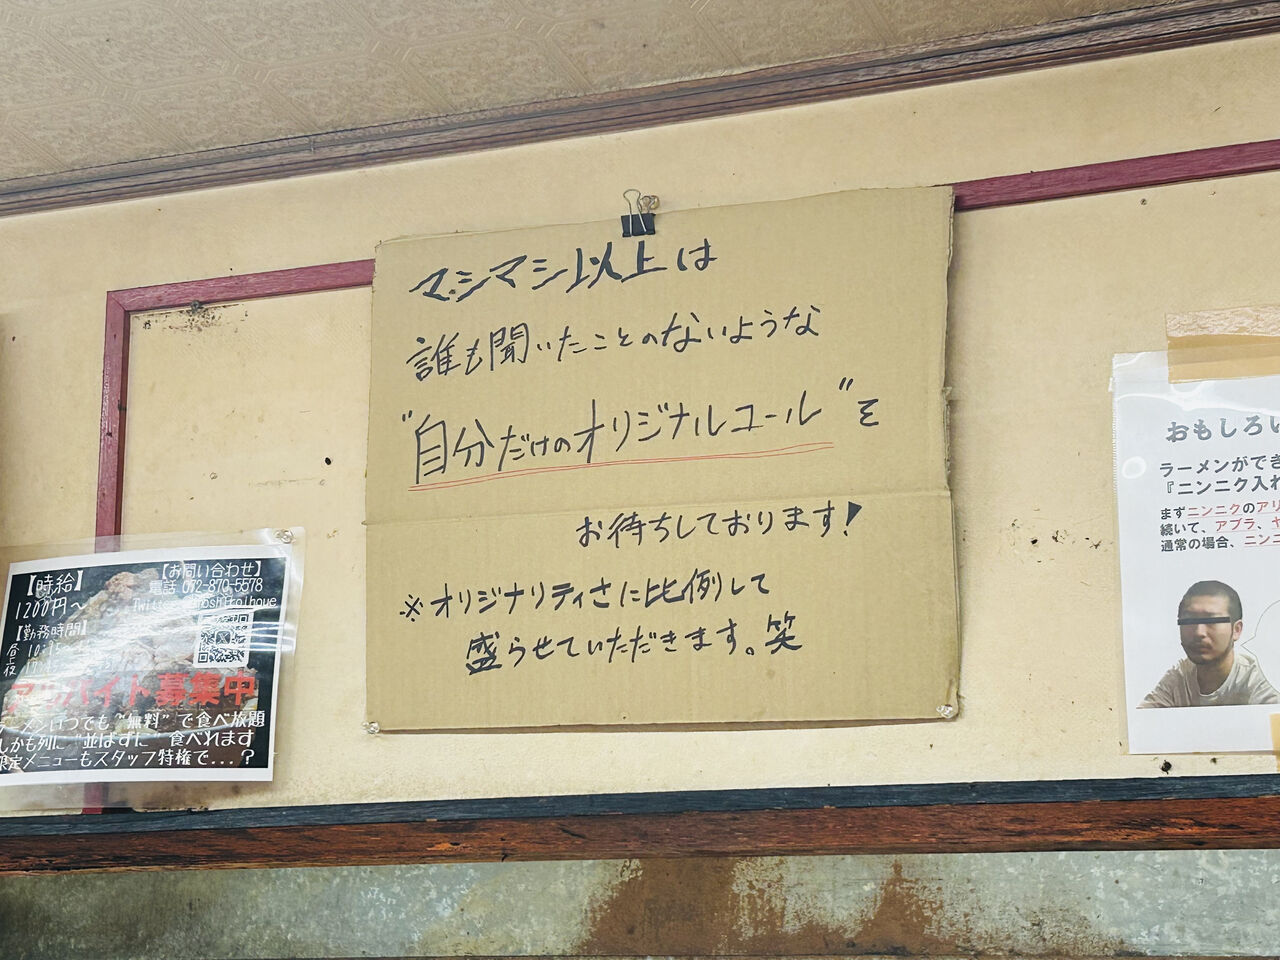 マシマシ以上は
誰も聞いたことのないような
"自分だけのオリジナルコール"を
お待ちしております!
※オリジナリティさに比例して
盛らせていただきます。笑
【時給】
1200円〜
【お問い合わせ】
電話 072-870-5578
Twitter
【勤務時間】
昼
夜
アルバイト募集中
ラーメンいつでも"無料"で食べ放題
しかも列に"並ばずに"食べれます
限定メニューもスタッフ特権で...?
おもしろい
ラーメンができ
『ニンニク入れ
まずニンニクのアリ
続いて、アブラ、ヤ
通常の場合、ニンニ